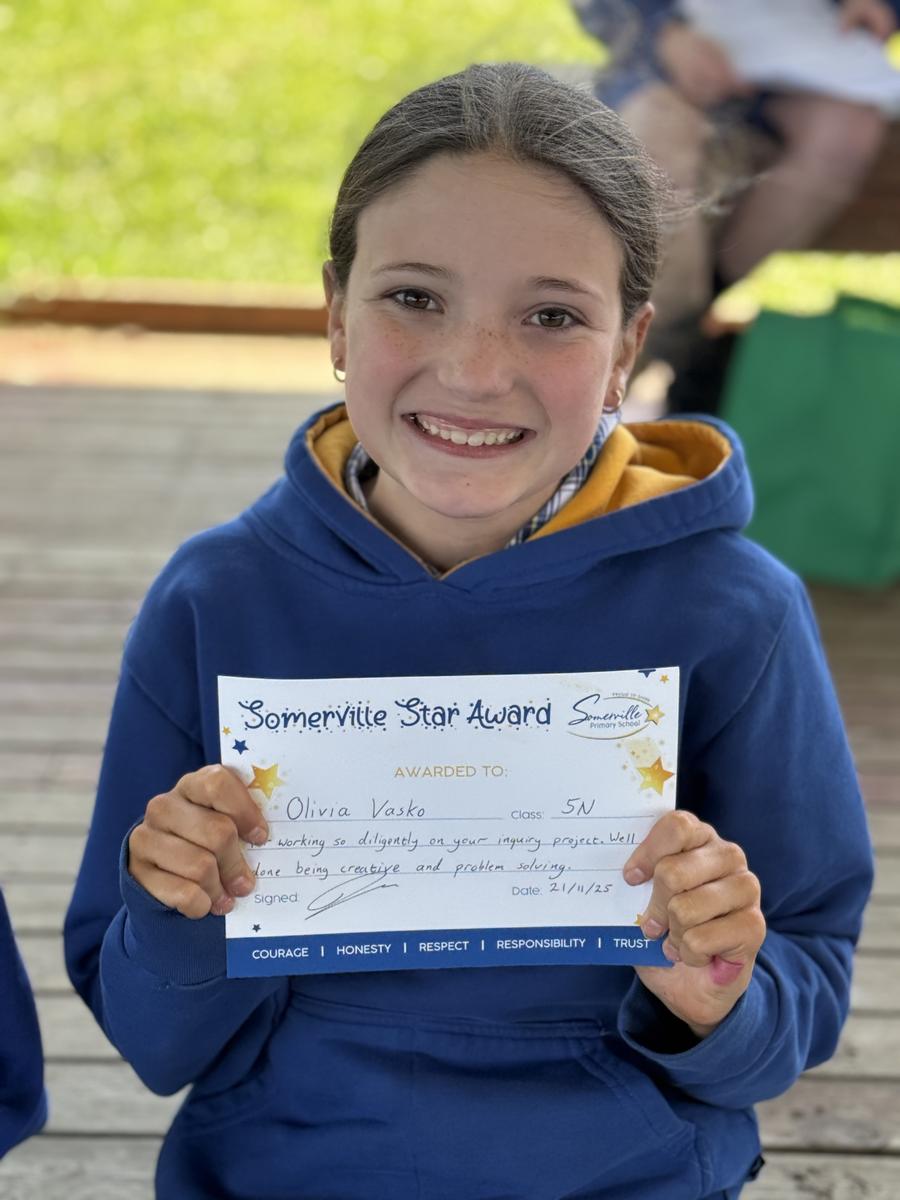 Somerville Star Award
PROUD TO SHINE
Somerville
Primary School
AWARDED TO:
Olivia Vasko Class: 5N
working so diligently on your inquiry project. Well
done being creative and problem solving.
Signed: Date: 21/11/25
COURAGE | HONESTY | RESPECT | RESPONSIBILITY | TRUST